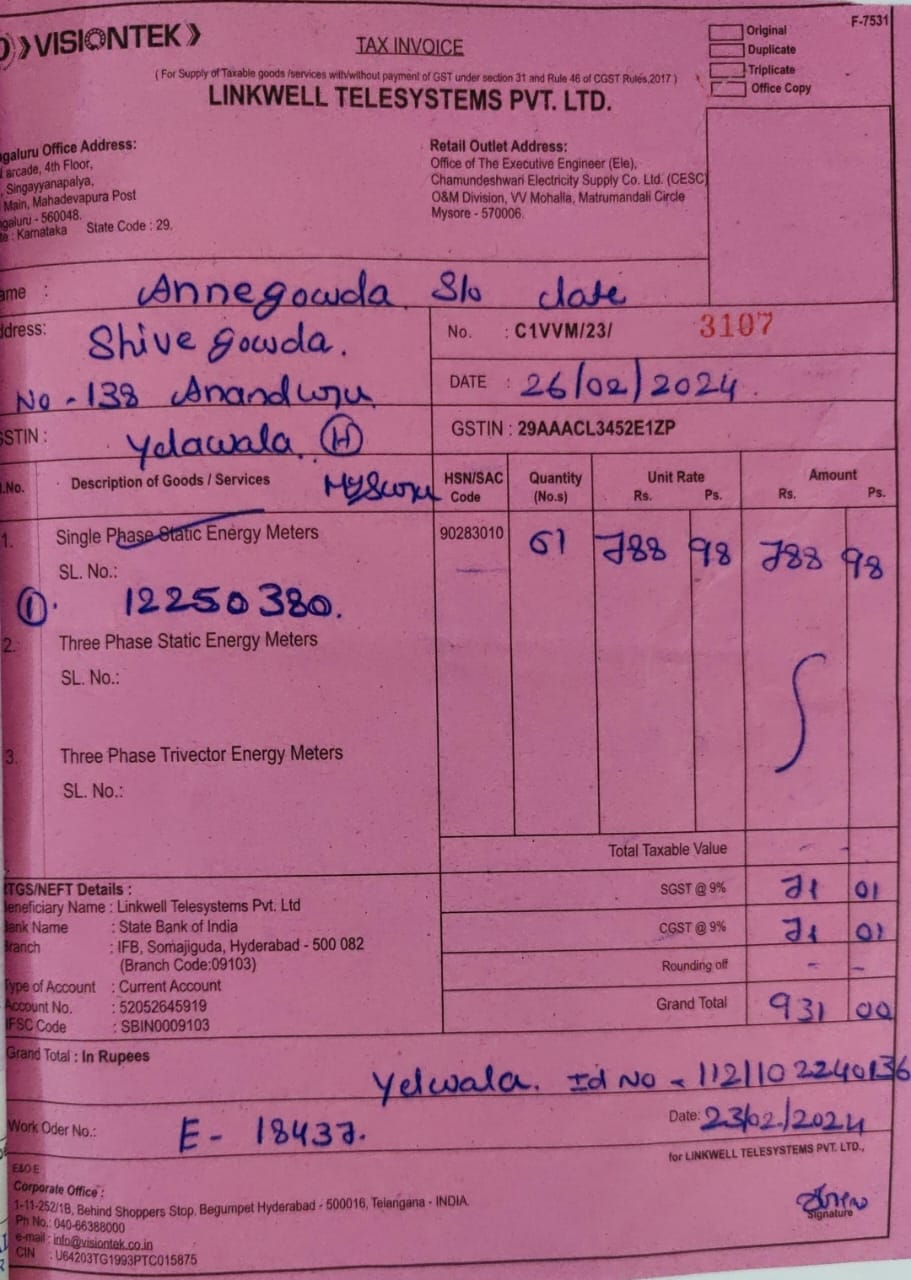 VISIONTEK
F-7531
TAX INVOICE
Original
Duplicate
Triplicate
Office Copy
( For Supply of Taxable goods /services with/without payment of GST under section 31 and Rule 46 of CGST Rules,2017 )
LINKWELL TELESYSTEMS PVT. LTD.
galuru Office Address:
arcade, 4th Floor,
Singayyanapalya,
Main, Mahadevapura Post
galuru - 560048.
: Karnataka State Code : 29.
Retail Outlet Address:
Office of The Executive Engineer (Ele),
Chamundeshwari Electricity Supply Co. Ltd. (CESC)
O&M Division, VV Mohalla, Matrumandali Circle
Mysore - 570006.
ame : Annegowda S/o late
ddress: Shive gowda.
No - 138 Ananduru
STIN : Yelawala (H)
Mysuru
No. : C1VVM/23/ 3107
DATE : 26/02/2024.
GSTIN : 29AAACL3452E1ZP
.No. Description of Goods / Services HSN/SAC Code Quantity (No.s) Unit Rate Rs. Ps. Amount Rs. Ps.
1. Single Phase Static Energy Meters 90283010 01 788 98 788 98
SL. No.:
1. 12250380.
2. Three Phase Static Energy Meters
SL. No.:
3. Three Phase Trivector Energy Meters
SL. No.:
Total Taxable Value - -
SGST @ 9% 71 01
CGST @ 9% 71 01
Rounding off - -
Grand Total 931 00
TGS/NEFT Details :
eneficiary Name : Linkwell Telesystems Pvt. Ltd
ank Name : State Bank of India
ranch : IFB, Somajiguda, Hyderabad - 500 082
(Branch Code:09103)
Type of Account : Current Account
Account No. : 52052645919
IFSC Code : SBIN0009103
Grand Total : In Rupees
Yelwala. Id No - 1121102240136
Work Oder No.: E - 18437.
Date: 23/02/2024
for LINKWELL TELESYSTEMS PVT. LTD.,
E&O E
Corporate Office :
1-11-252/1B, Behind Shoppers Stop, Begumpet Hyderabad - 500016, Telangana - INDIA.
Ph No.: 040-66388000
e-mail : info@visiontek.co.in
CIN : U64203TG1993PTC015875
Signature